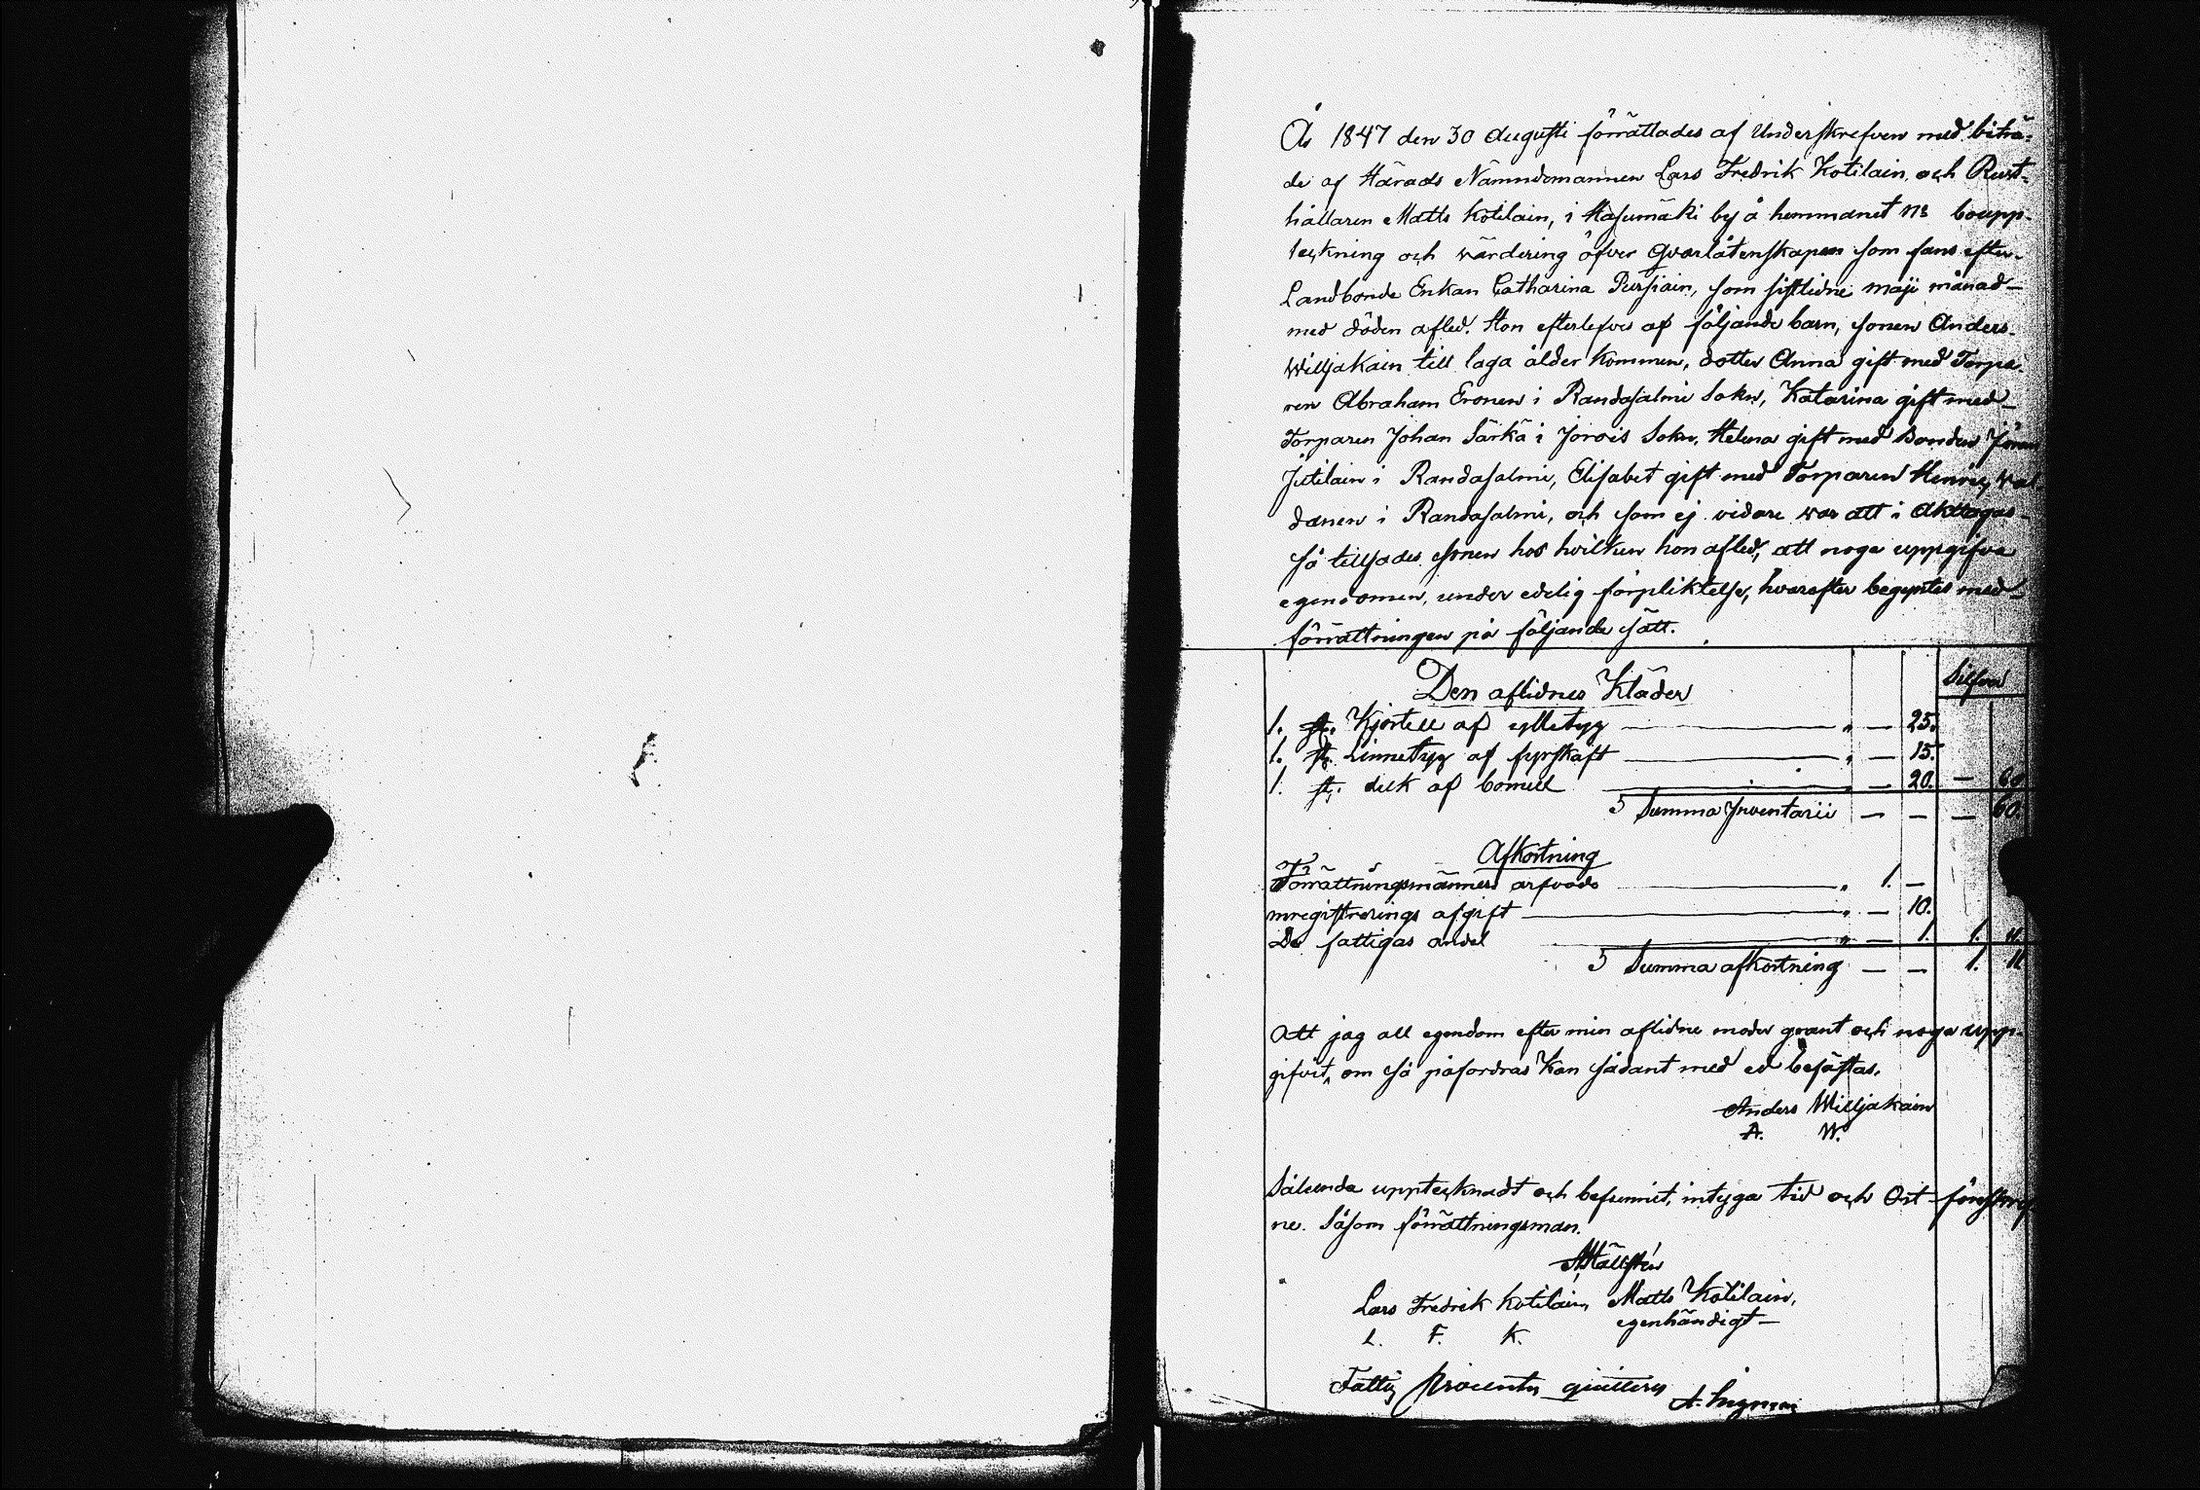 År 1847 den 30 Augusti förrättades af Underskrefven med biträ-
de af Härads Nämndomannen Lars Fredrik Kotilain, och Rust-
hållaren Matts Kotilain, i Hasumäki by å hemmanet № boupp-
teckning och värdering öfver Qvarlåtenskapen som fans efter
Landbonde Enkan Catharina Pursiain, som sistlidne maji månad
med döden afled. Hon efterlefves af följande barn, sonen Anders
Willjakain till laga ålder kommen, dotter Anna gift med Torpa-
ren Abraham Eronen i Randasalmi Sokn, Katarina gift med
Torparen Johan Särkä i Jorois Sokn, Helena gift med Bonden
Jutilain i Randasalmi, Elisabet gift med Torparen Henric Val-
danen i Randasalmi, och som ej vidare var att i Akttagas
så tillsades sonen hos hvilken hon afled, att noga uppgifva
egendomen, under edelig förpliktelse, hvarefter begyntes med
förrättningen på följande sätt.
Silfver
Den aflidnes Kläder
1. st. Kjortell af ylletyg " — 25.
1. st. Linnetyg af fyrskaft " — 15.
1. st. duk af bomull " — 20. — 60.
S Summa Inventarii — — — 60.
Afkortning
Förrättningsmännens arfvode " 1. —
inregistrerings afgift " — 10.
De fattigas andel " — 1. 1. 11.
S Summa afkortning — — 1. 11
Att jag all egendom efter min aflidne moder grant och noga upp-
gifvit, om så påfordras kan sådant med ed befästas.
Anders Willjakain
A. W.
Sålunda upptecknadt och befunnit, intyga tid och Ort förskref
ne. Såsom förrättningsman.
Hällstén
Lars Fredrik Kotilain, Matts Kotilain,
egenhändigt
L. F. K.
Fattig Procenten qvitteras